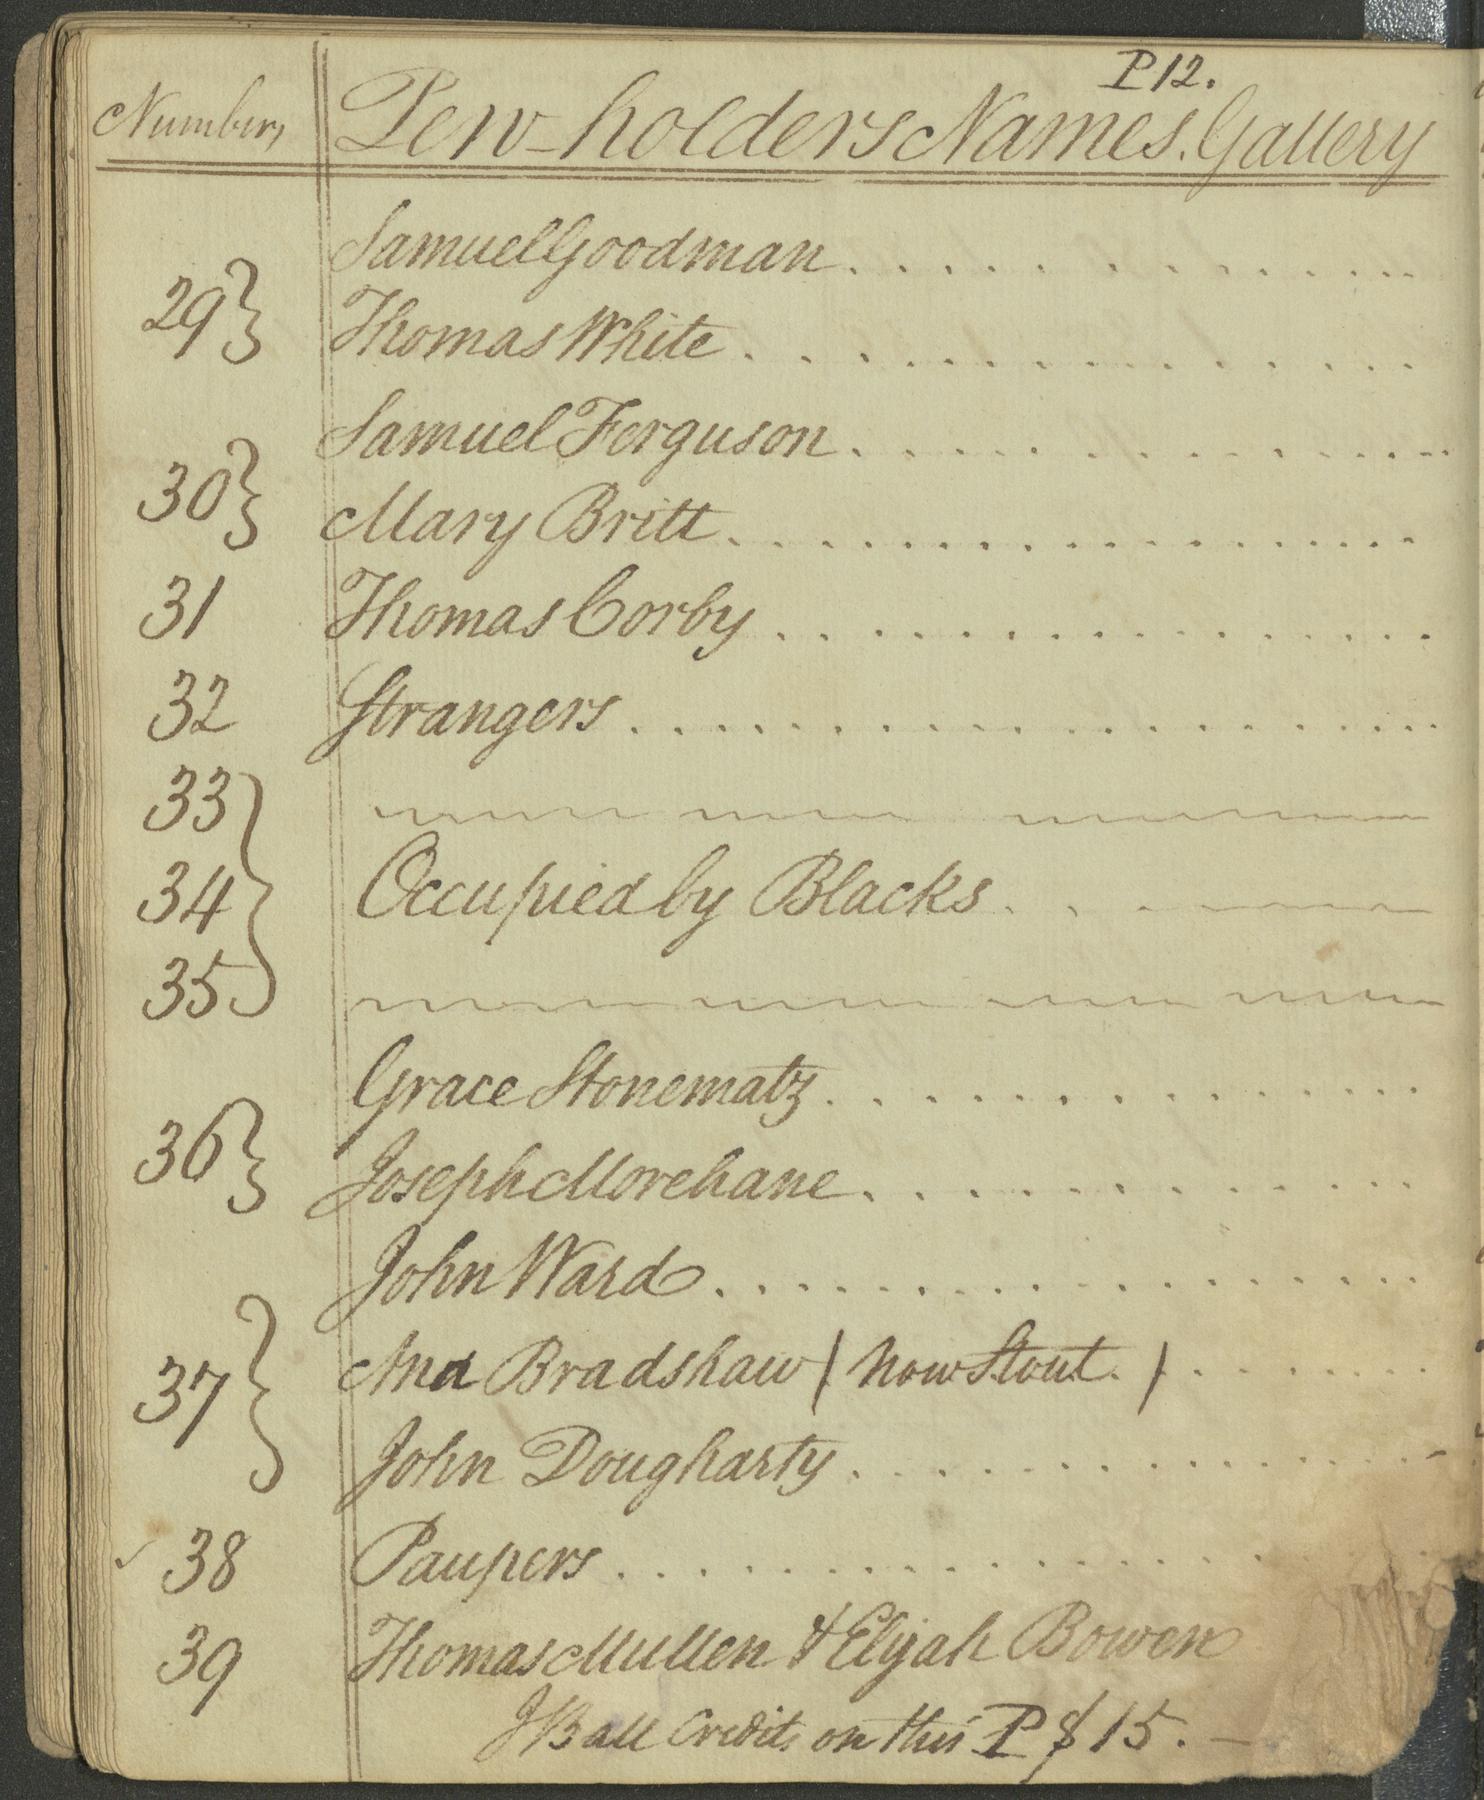 P 12.
Numbers Pew-holders Names. Gallery
Samuel Goodman
29 Thomas White
Samuel Ferguson
30 Mary Britt
31 Thomas Corby
32 Strangers
33
34 Occupied by Blacks
35
Grace Stonematz
36 Joseph Morehane
John Ward
37 Ana Bradshaw ( Now Stout. )
John Dougharty
38 Paupers
39 Thomas Mullen & Elijah Bowen
JB all Credits on this P $15.